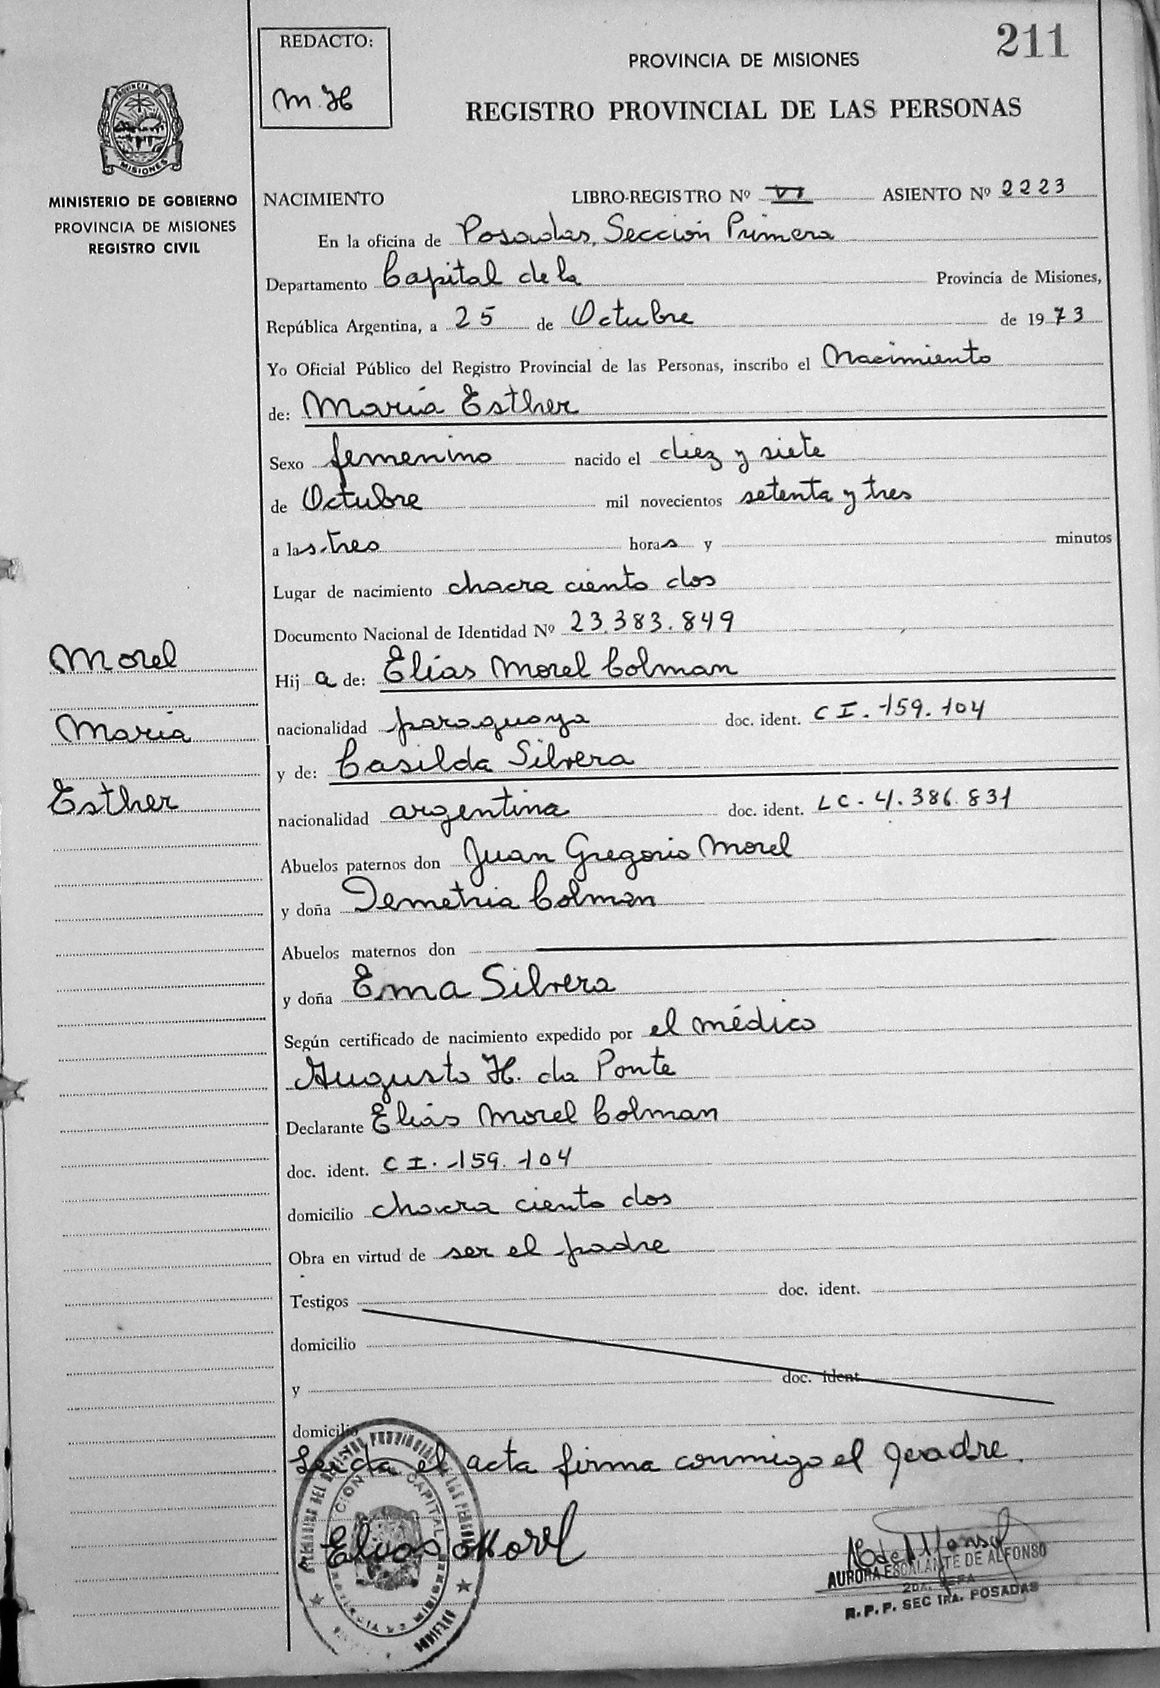 211
REDACTO:
M.H
PROVINCIA DE MISIONES
REGISTRO PROVINCIAL DE LAS PERSONAS
PROVINCIA DE
MISIONES
MINISTERIO DE GOBIERNO
PROVINCIA DE MISIONES
REGISTRO CIVIL
NACIMIENTO LIBRO-REGISTRO Nº VI ASIENTO Nº 2223
En la oficina de Posadas, Sección Primera
Departamento Capital de la Provincia de Misiones,
República Argentina, a 25 de Octubre de 1973
Yo Oficial Público del Registro Provincial de las Personas, inscribo el Nacimiento
de: María Esther
Sexo femenino nacido el diez y siete
de Octubre mil novecientos setenta y tres
a las tres horas y minutos
Lugar de nacimiento chacra ciento dos
Documento Nacional de Identidad Nº 23.383.849
Morel
María
Esther
Hija de: Elías Morel Colman
nacionalidad paraguaya doc. ident. CI. 159.104
y de: Casilda Silvera
nacionalidad argentina doc. ident. LC. 4.386.831
Abuelos paternos don Juan Gregorio Morel
y doña Demetria Colman
Abuelos maternos don
y doña Ema Silvera
Según certificado de nacimiento expedido por el médico
Augusto H. da Ponte
Declarante Elías Morel Colman
doc. ident. CI. 159.104
domicilio chacra ciento dos
Obra en virtud de ser el padre
Testigos doc. ident.
domicilio
y doc. ident.
domicilio
Leida el acta firma conmigo el padre.
Elias Morel
AURORA ESCALANTE DE ALFONSO
2DA. JEFA
R.P.P. SEC 1RA. POSADAS